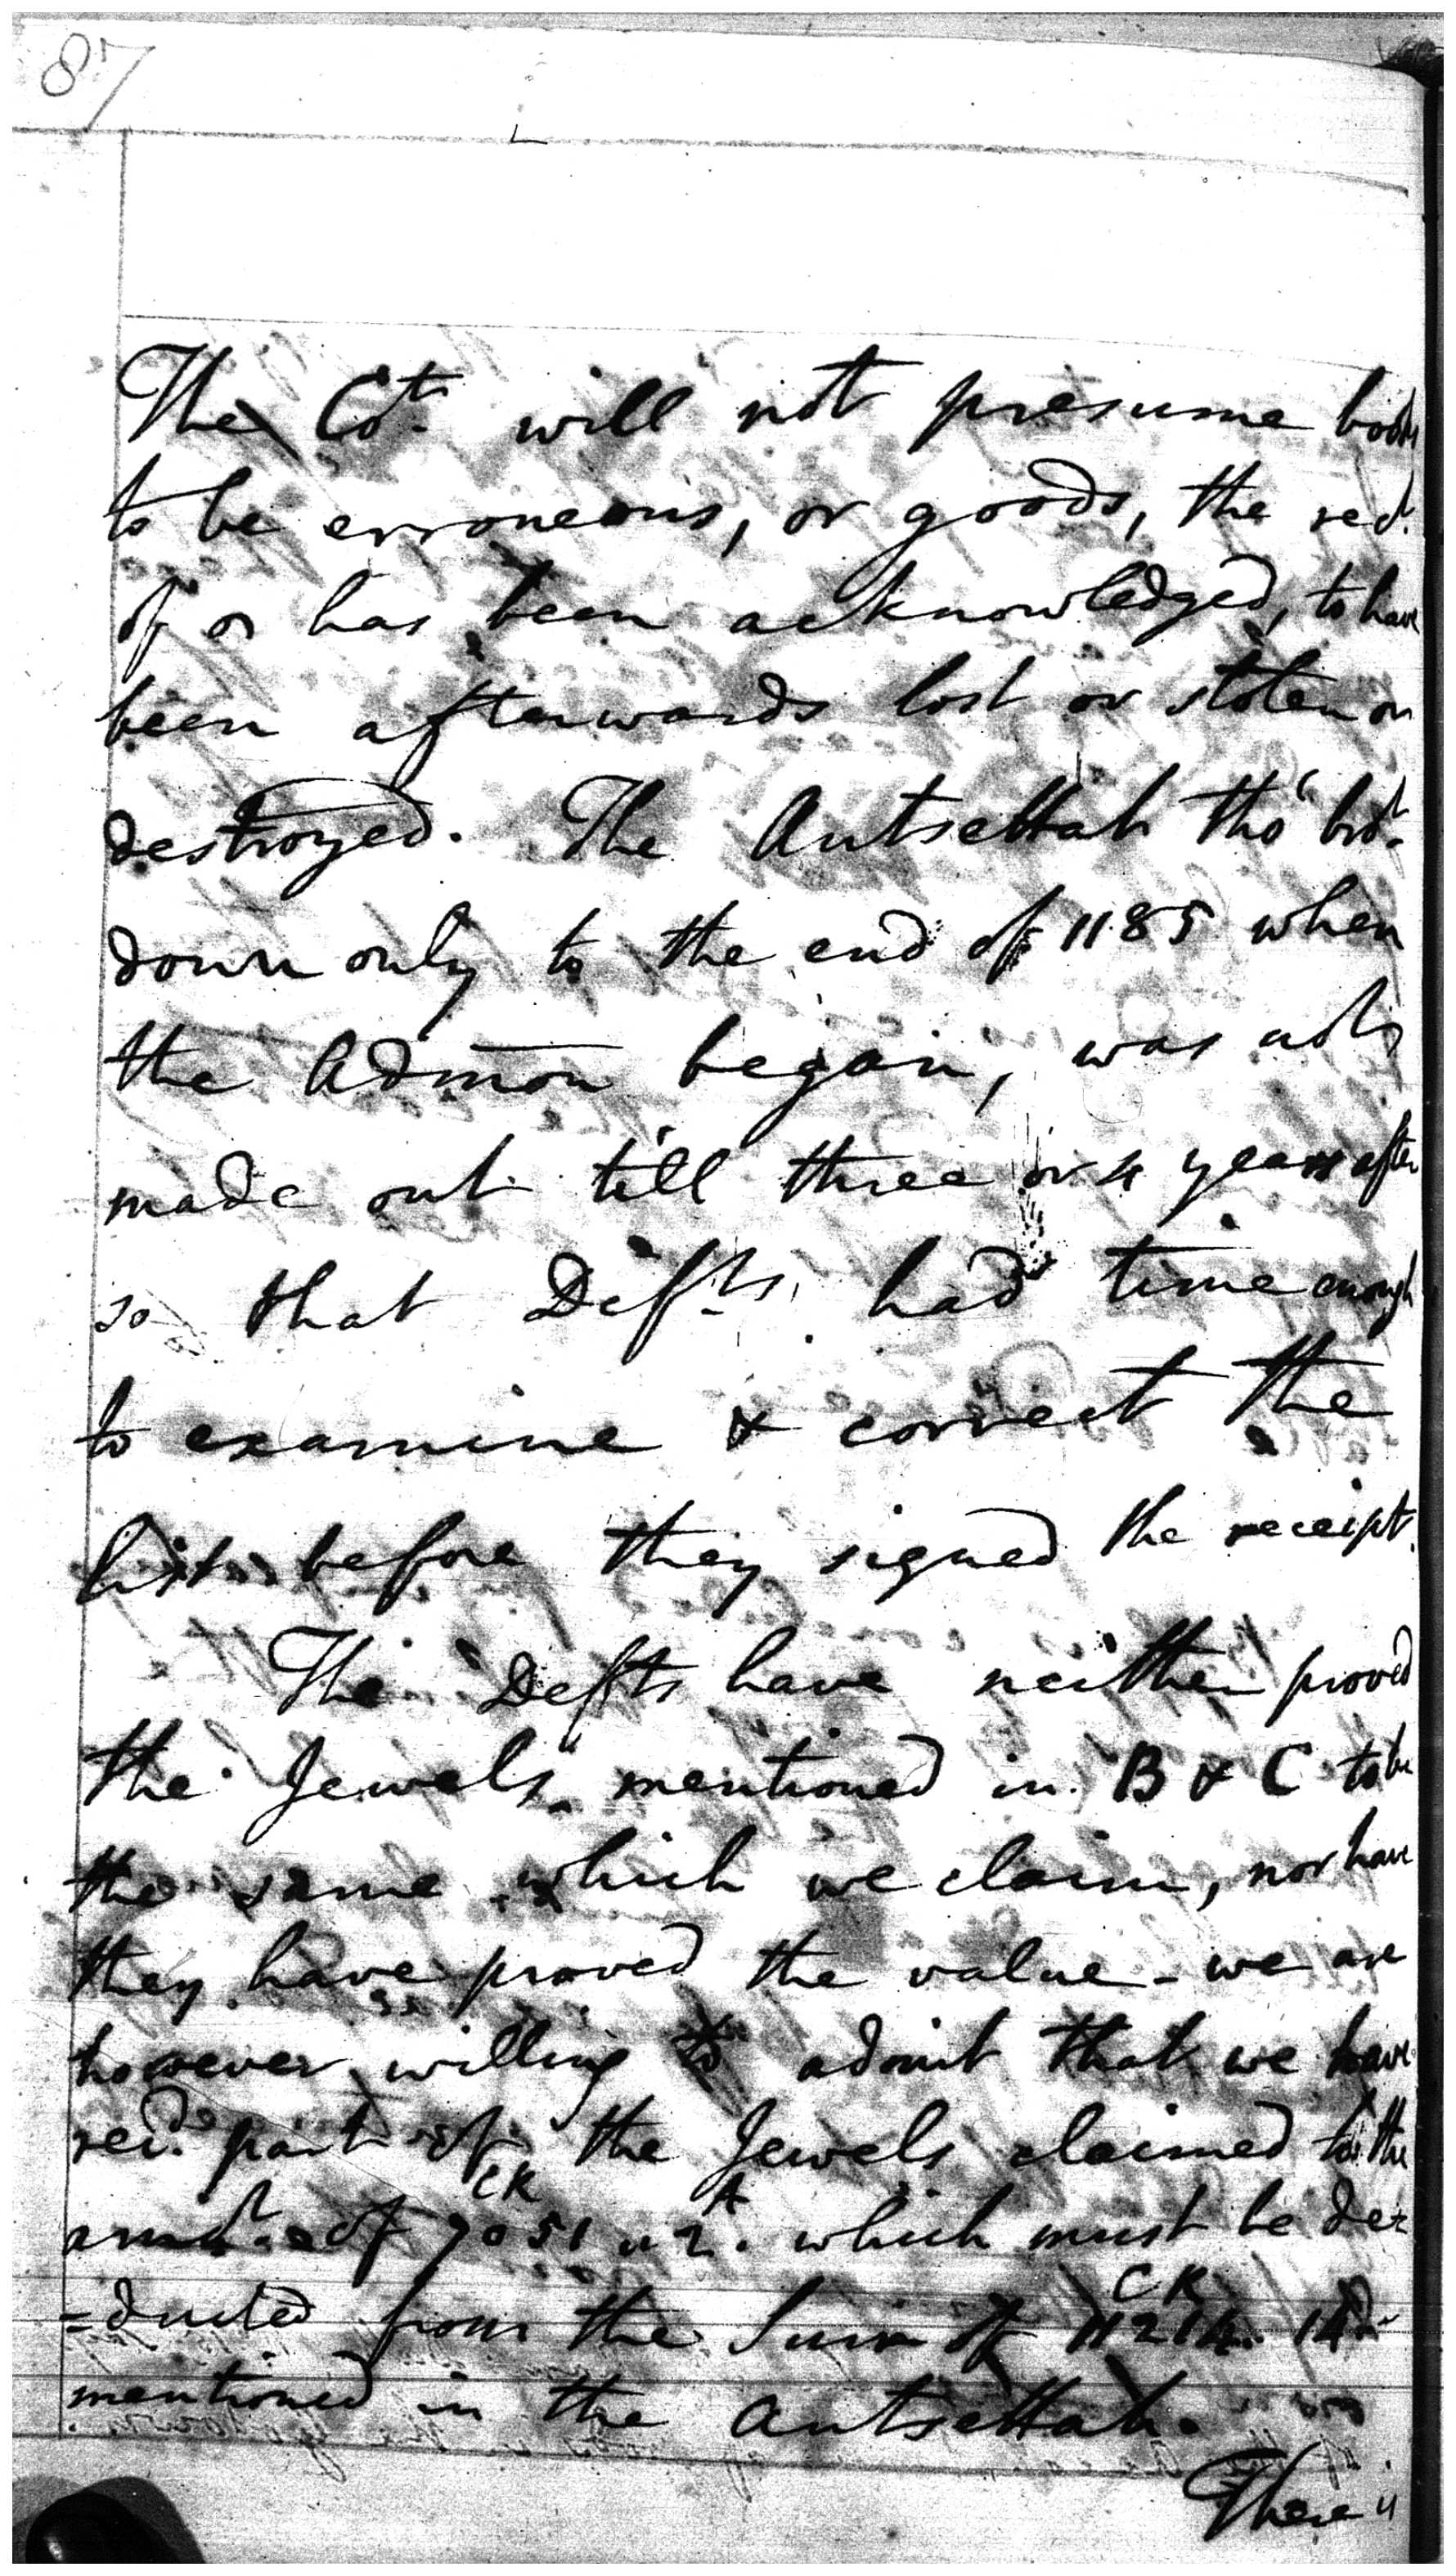 87
The Ct. will not presume both
to be erroneous, or goods, the rect.
of or has been acknowledged, to have
been afterwards lost or stolen or
destroyed. The Autsettah tho' brot.
down only to the end of 1185 when
the Admon began, was not
made out till three or 4 years after
so that Defts. had time enough
to examine & correct the
lists before they signed the receipt.
The Defts have neither proved
the Jewels mentioned in B & C to be
the same which we claim, nor have
they have proved the value - we are
however willing to admit that we have
recd. part of the Jewels claimed to the
CR A
amt. of 7051 " 2. which must be de-
CR
-ducted from the Sum of 11214. 14
mentioned in the Autsettah.
There "